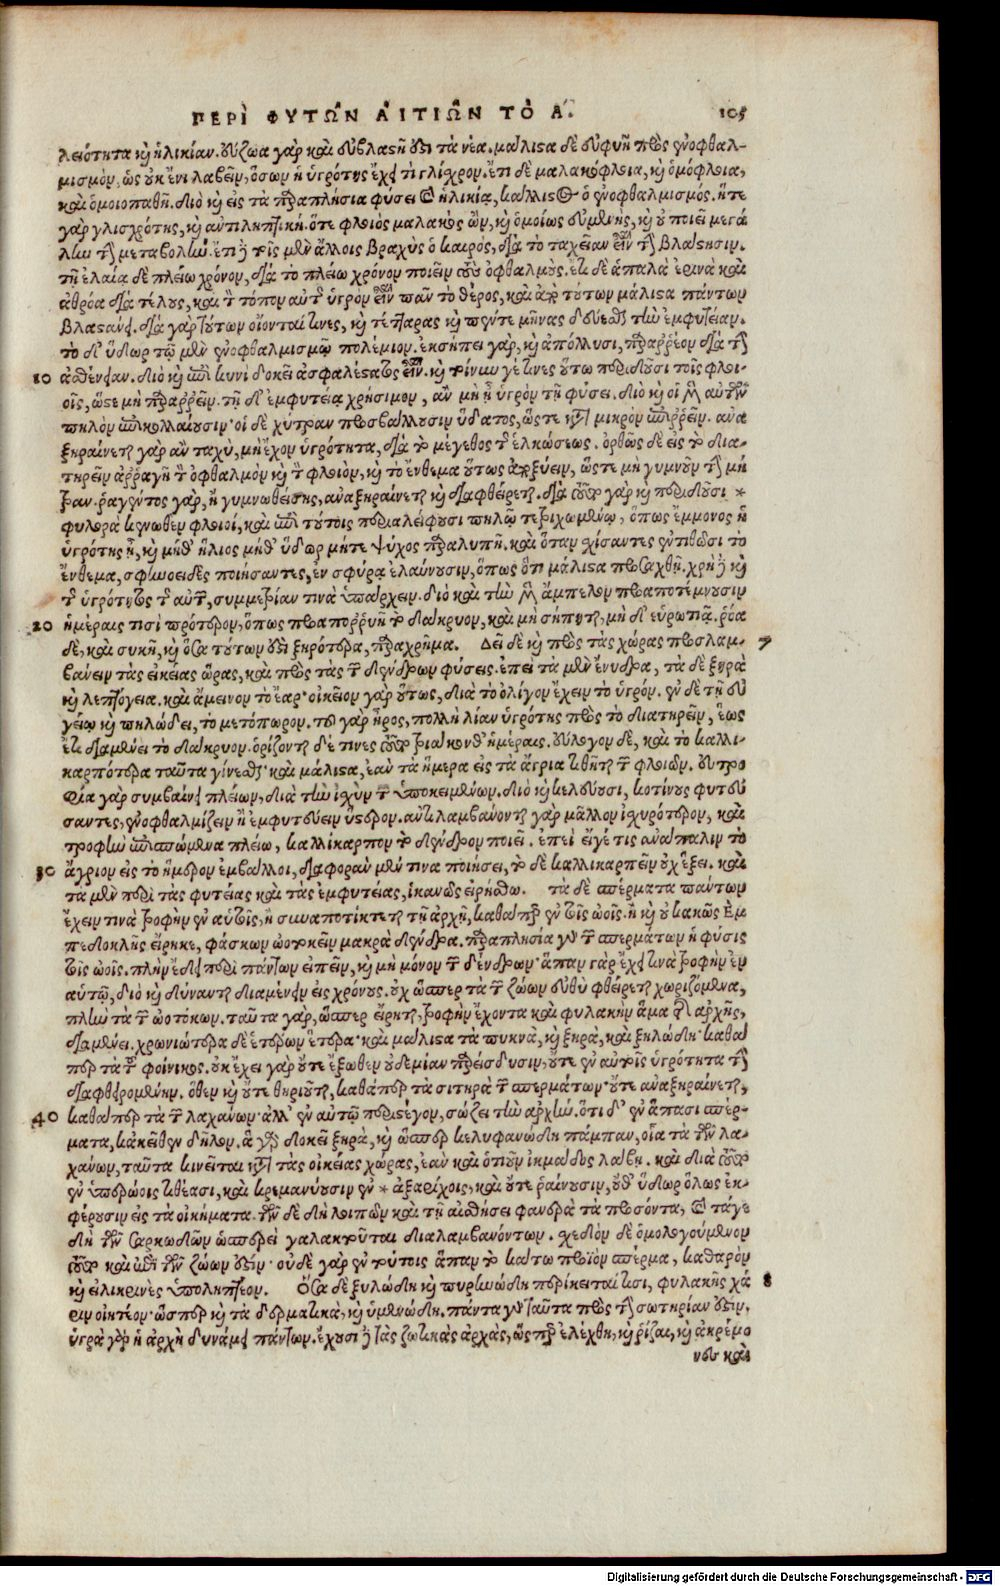 ΠΕΡῚ ΦΥΤΩ͂Ν ΑἸΤΙΩ͂Ν ΤῸ Α. 105
λειότητα καὶ ἡλικίαν. εὔζωα γὰρ καὶ εὐβλαστῆ ἐστι τὰ νέα. μάλιστα δὲ εὐφυῆ πρὸς ἐνοφθαλ-
μισμὸν, ὡς οὐκ ἔνι λαβεῖν, ὅσων ἡ ὑγρότης ἔχει τὶ γλίχρον. ἔτι δὲ μαλακόφλοια, καὶ ὁμόφλοια,
καὶ ὁμοιοπαθῆ. διὸ καὶ εἰς τὰ παραπλήσια φύσει καὶ ἡλικίᾳ, κάλλιστος ὁ ἐνοφθαλμισμός. ἥτε
γὰρ γλισχρότης, καὶ ἀντιληπτική. ὅτε φλοιὸς μαλακὸς ὢν, καὶ ὁμοίως εὐμενὴς, καὶ οὐ ποιεῖ μεγά
λην τὴν μεταβολήν. ἔτι δὲ τοῖς μὲν ἄλλοις βραχὺς ὁ καιρὸς, διὰ τὸ ταχεῖαν εἶναι τὴν βλάστησιν.
τῇ ἐλαίᾳ δὲ πλείω χρόνον, διὰ τὸ πλείω χρόνον ποιεῖν τοὺς ὀφθαλμούς. ἔτι δὲ ἁπαλὰ ἐρινὰ καὶ
ἀθρόα διὰ τέλους, καὶ τὸν τόπον αὐτοῦ ὑγρὸν εἶναι πᾶν τὸ θέρος, καὶ ἀπὸ τούτων μάλιστα πάντων
βλαστάνει. διὰ γὰρ τούτων οἴονταί τινες, καὶ τέτταρας καὶ πέντε μῆνας δύεσθαι τὴν ἐμφυτείαν.
τὸ δ' ὕδωρ τῷ μὲν ἐνοφθαλμισμῷ πολέμιον. ἐκσήπει γὰρ, καὶ ἀπόλλυσι, παραῤῥέον διὰ τὴν
10 ἀσθένειαν. διὸ καὶ ἐπὶ κυνὶ δοκεῖ ἀσφαλέστατος εἶναι. καὶ τοίνυν γέ τινες οὕτω περιδοῦσι τοῖς φλοι-
οῖς, ὥστε μὴ παραῤῥεῖν. τῇ δ' ἐμφυτείᾳ χρήσιμον, ἂν μὴ ᾖ ὑγρὸν τῇ φύσει. διὸ καὶ οἱ μὲν αὐτῶν
πηλὸν ἐπικολλαίουσιν· οἱ δὲ χύτραν προσβάλλουσιν ὕδατος, ὥστε κατὰ μικρὸν ἐπιῤῥεῖν. ἀνα
ξηραίνεται γὰρ ἂν ταχὺ, μὴ ἔχον ὑγρότητα, διὰ τὸ μέγεθος τῆς ἑλκώσεως. ὀρθῶς δὲ εἰς τὸ δια-
τηρεῖν ἀῤῥαγῆ τὸν ὀφθαλμὸν καὶ τὸν φλοιὸν, καὶ τὸ ἔνθεμα οὕτως ἀποξύειν, ὥστε μὴ γυμνοῦν τὴν μή
τραν. ῥαγέντος γὰρ, ἢ γυμνωθείσης, ἀναξηραίνεται καὶ διαφθείρεται. διὰ τοῦτο γὰρ καὶ περιδοῦσι *
φυλυρὰ κενωθεν φλοιοί, καὶ ἐπὶ τούτοις περιαλείφουσι πηλῷ τετριχωμένῳ, ὅπως ἔμμονος ἡ
ὑγρότης ᾖ, καὶ μήθ' ἥλιος μήθ' ὕδωρ μήτε ψύχος παραλυπῇ. καὶ ὅταν σχίσαντες ἐντιθῶσι τὸ
ἔνθεμα, σφηνοειδὲς ποιήσαντες, ἐν σφύρᾳ ἐλαύνουσιν, ὅπως ὅτι μάλιστα προσαχθῇ. χρὴ δὲ καὶ
τῆς ὑγρότητος τῆς αὐτῆς, συμμετρίαν τινὰ ὑπάρχειν. διὸ καὶ τὴν μὲν ἄμπελον προαποτέμνουσιν
20 ἡμέραις τισὶ πρότερον, ὅπως προαποῤῥυῇ τὸ δάκρυον, καὶ μὴ σήπηται, μὴ δ' εὐρωτιᾷ. ῥόα
δὲ, καὶ συκῆ, καὶ ὅσα τούτων ἐστὶ ξηρότερα, παραχρῆμα. Δεῖ δὲ καὶ πρὸς τὰς χώρας προσλαμ- 7
βάνειν τὰς οἰκείας ὥρας, καὶ πρὸς τὰς τῶν δένδρων φύσεις. ἐπεὶ τὰ μὲν ἔνυδρα, τὰ δὲ ξηρὰ
καὶ λεπτόγεια. καὶ ἄμεινον τὸ ἔαρ· οἰκεῖον γὰρ οὕτως, διὰ τὸ ὀλίγον ἔχειν τὸ ὑγρόν. ἐν δὲ τῇ εὐ
γείῳ καὶ πηλώδει, τὸ μετόπωρον. τοῦ γὰρ ἦρος, πολλὴ λίαν ὑγρότης πρὸς τὸ διατηρεῖν, ἕως
ἔτι διαμένει τὸ δάκρυον. ὁρίζονται δέ τινες τοῦτο τριάκονθ' ἡμέραις. εὔλογον δὲ, καὶ τὸ καλλι-
καρπότερα ταῦτα γίνεσθαι· καὶ μάλιστα, ἐὰν τὰ ἥμερα εἰς τὰ ἄγρια τιθῆται τῶν φλοιῶν. εὐτρο
φία γὰρ συμβαίνει πλείων, διὰ τὴν ἰχὺν τῶν ὑποκειμένων. διὸ καὶ κελεύουσι, κοτίνους φυτεύ
σαντες, ἐνοφθαλμίζειν ἢ ἐμφυτεύειν ὕστερον. ἀντιλαμβάνονται γὰρ μᾶλλον ἰχυρότερον, καὶ
τροφὴν ἐπισπώμενα πλείω, καλλίκαρπον τὸ δένδρον ποιεῖ. ἐπεὶ εἴγέ τις ἀνάπαλιν τὸ
30 ἄγριον εἰς τὸ ἥμερον ἐμβάλλοι, διαφορὰν μέν τινα ποιήσει, τὸ δὲ καλλικαρπεῖν οὐχ ἕξει. καὶ
τὰ μὲν περὶ τὰς φυτείας καὶ τὰς ἐμφυτείας, ἱκανῶς εἰρήσθω. τὰ δὲ σπέρματα πάντων
ἔχειν τινὰ τροφὴν ἐν αὑτοῖς, ἣ συναποτίκτεται τῇ ἀρχῇ, καθάπερ ἐν τοῖς ὠοῖς. ᾗ καὶ οὐ κακῶς Ἐμ
πεδοκλῆς εἴρηκε, φάσκων ὠοτοκεῖν μακρὰ δένδρα. παραπλησία γὰρ τῶν σπερμάτων ἡ φύσις
τοῖς ὠοῖς. πλὴν ἔδει περὶ πάντων εἰπεῖν, καὶ μὴ μόνον τῶν δένδρων· ἅπαν γὰρ ἔχει τινὰ τροφὴν ἐν
αὑτῷ, διὸ καὶ δύναται διαμένειν εἰς χρόνους. οὐχ ὥσπερ τὰ τῶν ζώων εὐθὺ φθείρεται χωριζόμενα,
πλὴν τὰ τῶν ὠοτόκων. ταῦτα γὰρ, ὥσπερ εἴρηται, τροφὴν ἔχοντα καὶ φυλακὴν ἅμα τῆς ἀρχῆς,
διαμένει. χρονιώτερα δὲ ἑτέρων ἕτερα· καὶ μάλιστα τὰ πυκνὰ, καὶ ξηρὰ, καὶ ξηλώδη· καθά
περ τὰ τοῦ φοίνικος. οὐκ ἔχει γὰρ οὔτε ἔξωθεν οὐδεμίαν παρείσδυσιν, οὔτε ἐν αὑτοῖς ὑγρότητα τὴν
διαφθειρομένην. ὅθεν καὶ οὔτε θηριοῦται, καθάπερ τὰ σιτηρὰ τῶν σπερμάτων· οὔτε ἀναξηραίνεται,
40 καθάπερ τὰ τῶν λαχάνων· ἀλλ' ἐν αὑτῷ περιστέγον, σώζει τὴν ἀρχήν. ὅτι δ' ἐν ἅπασι σπέρ-
ματα, κἀκεῖθεν δῆλον. ἃ γὰρ δοκεῖ ξηρὰ, καὶ ὥσπερ κελυφανώδη πάμπαν, οἷα τὰ τῶν λα-
χάνων, ταῦτα κινεῖται κατὰ τὰς οἰκείας χώρας, ἐὰν καὶ ὁτιοῦν ἰκμάδος λάβῃ. καὶ διὰ τοῦτο
ἐν ὑπερώοις τιθέασι, καὶ κρεμανύουσιν ἐν * ἀξαρίχοις, καὶ οὔτε ῥαίνουσιν, οὐθ' ὕδωρ ὅλως ἐκ-
φέρουσιν εἰς τὰ οἰκήματα. τῶν δὲ δὴ λοιπῶν καὶ τῇ αἰσθήσει φανερὰ τὰ προσόντα, καὶ τάγε
δὴ τῶν σαρκωδῶν ὡσπερεὶ γαλακτοῦται διαλαμβανόντων. χεδὸν δὲ ὁμολογούμενον
τοῦτο καὶ ἐπὶ τῶν ζώων ἐστίν. οὐδὲ γὰρ ἐν τούτοις ἅπαν τὸ κάτω προϊὸν σπέρμα, καθαρὸν
καὶ εἰλικρινὲς ὑποληπτέον. Ὅσα δὲ ξυλώδη καὶ πυρηνώδη περίκειταί τισι, φυλακῆς χά 8
ριν οἰητέον· ὥσπερ καὶ τὰ δερματικὰ, καὶ ὑμενώδη. πάντα γὰρ ταῦτα πρὸς τὴν σωτηρίαν ἐστίν.
ὑγρὰ γὰρ ἡ ἀρχὴ δυνάμει πάντων. ἔχουσι δὲ τὰς ζωτικὰς ἀρχὰς, ὥσπερ ἐλέχθη, καὶ ῥίζαι, καὶ ἀκρέμο
νες καὶ
Digitalisierung gefördert durch die Deutsche Forschungsgemeinschaft - DFG